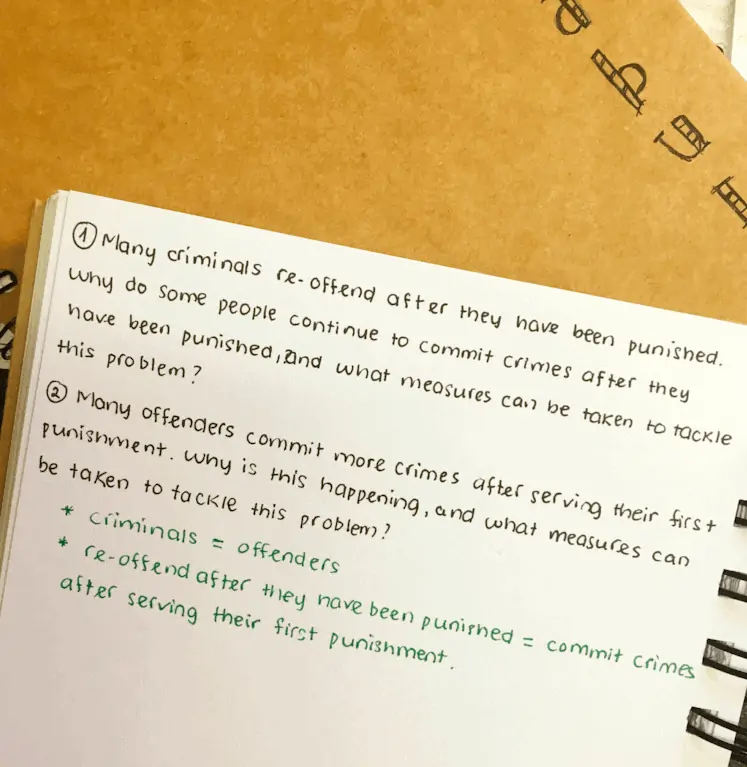 ① Many criminals re-offend after they have been punished.
Why do some people continue to commit crimes after they
have been punished, and what measures can be taken to tackle
this problem?
② Many offenders commit more crimes after serving their first
punishment. Why is this happening, and what measures can
be taken to tackle this problem?
* criminals = offenders
* re-offend after they have been punished = commit crimes
after serving their first punishment.